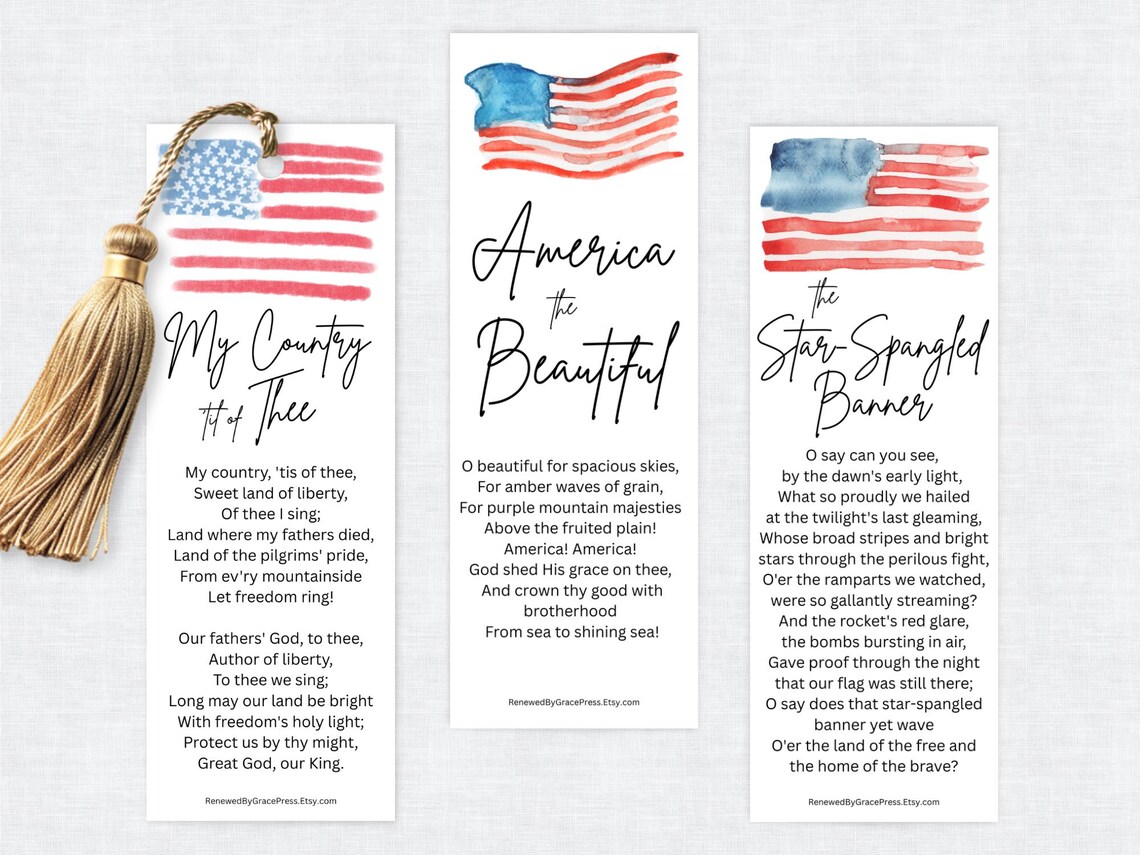 My Country
'til of Thee
My country, 'tis of thee,
Sweet land of liberty,
Of thee I sing;
Land where my fathers died,
Land of the pilgrims' pride,
From ev'ry mountainside
Let freedom ring!
Our fathers' God, to thee,
Author of liberty,
To thee we sing;
Long may our land be bright
With freedom's holy light;
Protect us by thy might,
Great God, our King.
RenewedByGracePress.Etsy.com
America
the
Beautiful
O beautiful for spacious skies,
For amber waves of grain,
For purple mountain majesties
Above the fruited plain!
America! America!
God shed His grace on thee,
And crown thy good with
brotherhood
From sea to shining sea!
RenewedByGracePress.Etsy.com
the
Star-Spangled
Banner
O say can you see,
by the dawn's early light,
What so proudly we hailed
at the twilight's last gleaming,
Whose broad stripes and bright
stars through the perilous fight,
O'er the ramparts we watched,
were so gallantly streaming?
And the rocket's red glare,
the bombs bursting in air,
Gave proof through the night
that our flag was still there;
O say does that star-spangled
banner yet wave
O'er the land of the free and
the home of the brave?
RenewedByGracePress.Etsy.com